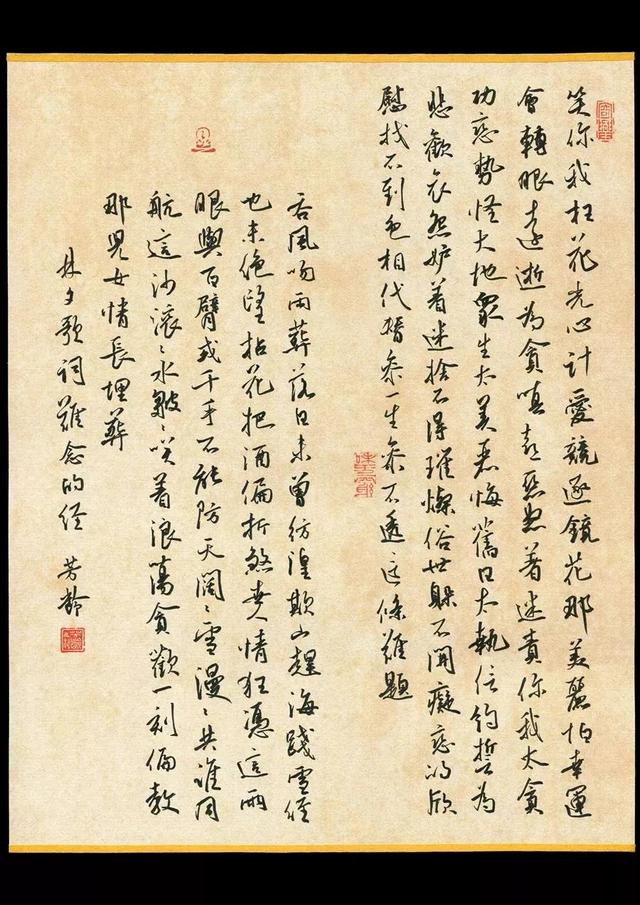 笑你我枉花光心計愛競逐鏡花那美麗怕幸運
會轉眼遠逝為貪嗔喜惡怒着迷責你我太貪
功戀勢怪大地眾生太美惡悔舊日太執信約誓為
悲歡哀怨妒着迷捨不得璀燦俗世躲不開癡戀的欣
慰找不到色相代替參一生參不透这條難題
吞風吻雨葬落日未曾彷徨欺山趕海踐雪徑
也未絕望拈花把酒偏折煞世人情狂憑這兩
眼與百臂或千手不能防天闊〻雪漫〻共誰同
航這沙滾〻水皺〻笑着浪蕩貪歡一刻偏教
那兒女情長埋葬
林夕歌詞難念的經 芳齡